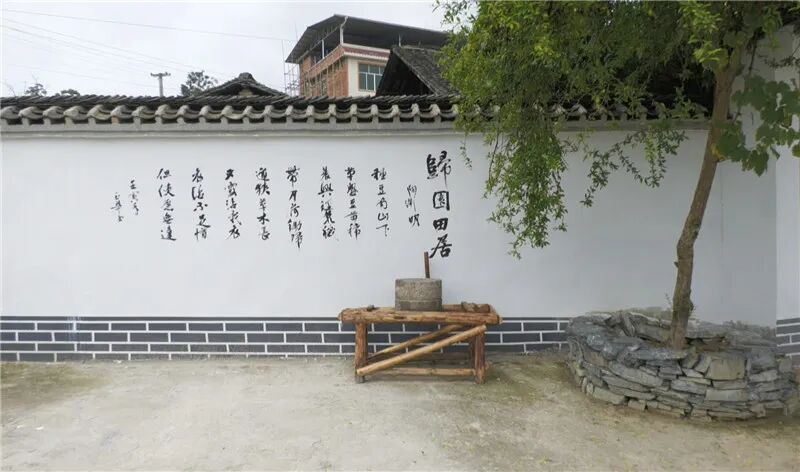 歸園田居
陶淵明
種豆南山下
草盛豆苗稀
晨興理荒穢
帶月荷鋤歸
道狹草木長
夕露沾我衣
衣沾不足惜
但使愿無違